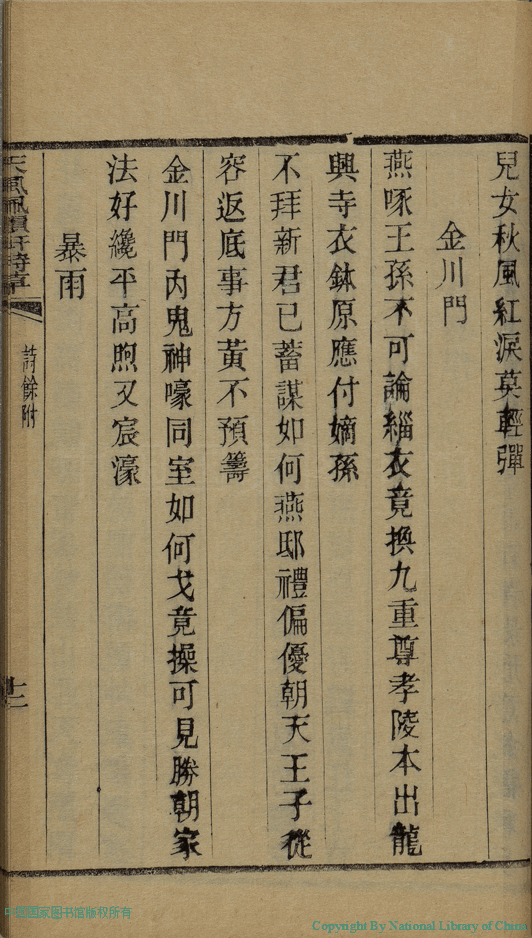 兒女秋風紅淚莫輕彈
金川門
燕啄王孫不可論緇衣竟換九重尊孝陵本出龍
興寺衣鉢原應付嫡孫
不拜新君已蓄謀如何燕邸禮偏優朝天王子從
容返底事方黃不預籌
金川門內鬼神嚎同室如何戈竟操可見勝朝家
法好纔平高煦又宸濠
暴雨
詩餘附
十二
中国国家图书馆版权所有
Copyright By National Library of China